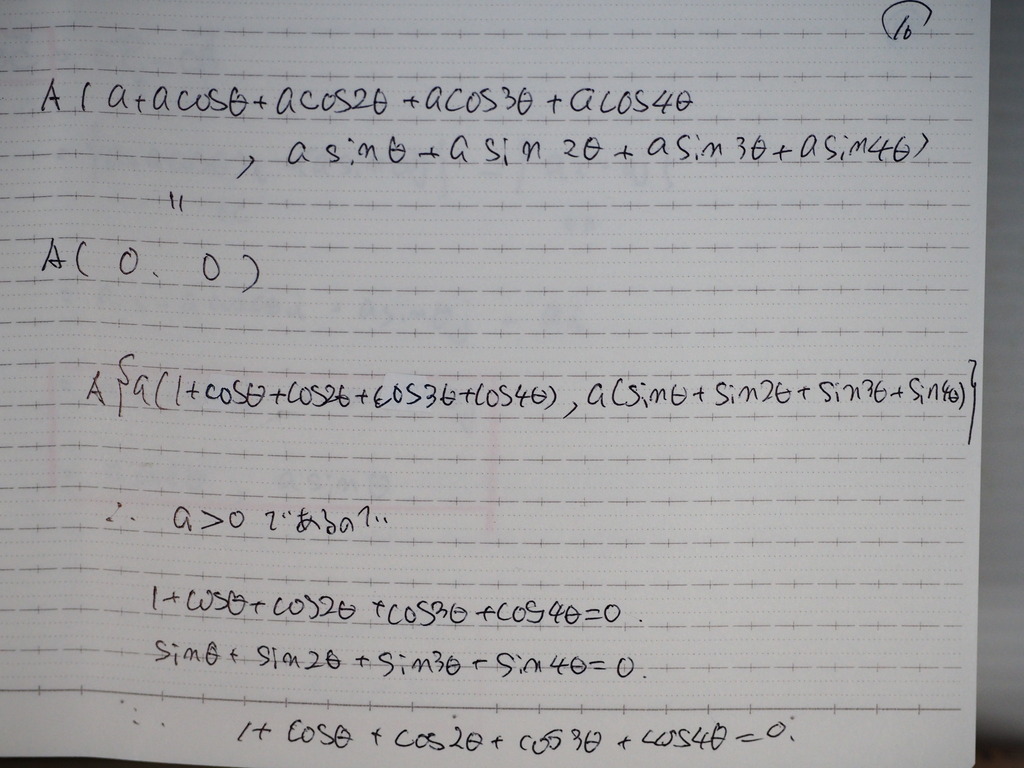 16
A ( a+acosθ+acos2θ+acos3θ+acos4θ
, asinθ+asin2θ+asin3θ+asin4θ)
〃
A( 0. 0 )
A{a(1+cosθ+cos2θ+cos3θ+cos4θ), a(sinθ+sin2θ+sin3θ+sin4θ)}
∴ a>0 であるので
1+cosθ+cos2θ+cos3θ+cos4θ=0.
sinθ+sin2θ+sin3θ+sin4θ=0.
∴ 1+cosθ+cos2θ+cos3θ+cos4θ=0.